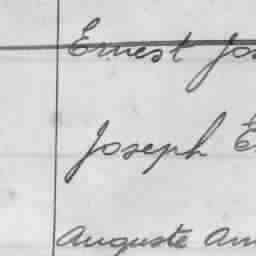 Ernest Jos
Joseph E
Auguste Am